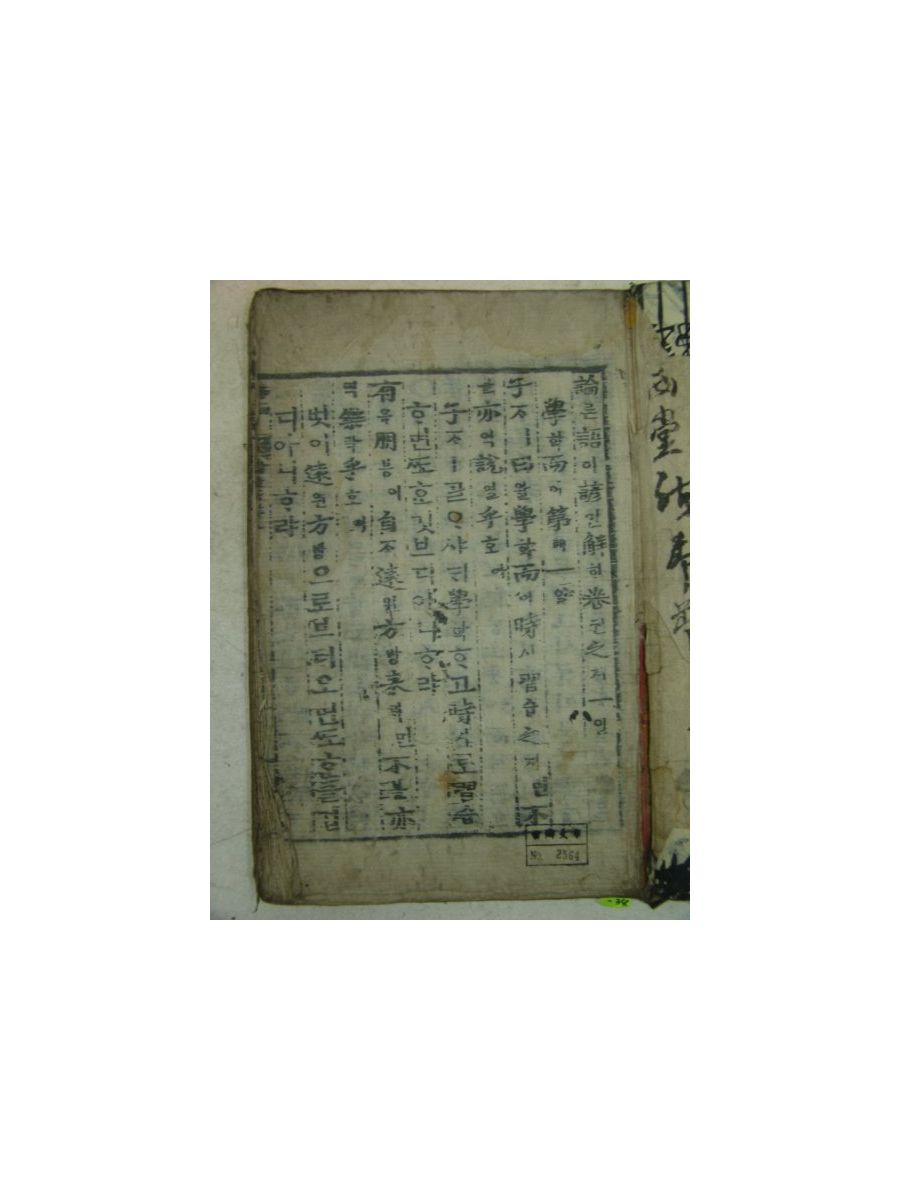 論론語어諺언解ᄒᆡ卷권之지一일
學ᄒᆞᆨ而이第뎨一일
子ᄌᆞㅣ曰왈學ᄒᆞᆨ而이時시習습之지면不
亦역說열乎호아
子ᄌᆞㅣᄀᆞᆯᄋᆞ샤ᄃᆡ學ᄒᆞᆨᄒᆞ고時시로習습
ᄒᆞ면ᄯᅩᄒᆞᆫ깃브디아니ᄒᆞ랴
有유朋붕이自ᄌᆞ遠원方방來ᄅᆡ면不블亦
역樂락乎호아
벗이遠원方방으로브터오면ᄯᅩᄒᆞᆫ즐겁
디아니ᄒᆞ랴
堂
No. 2564